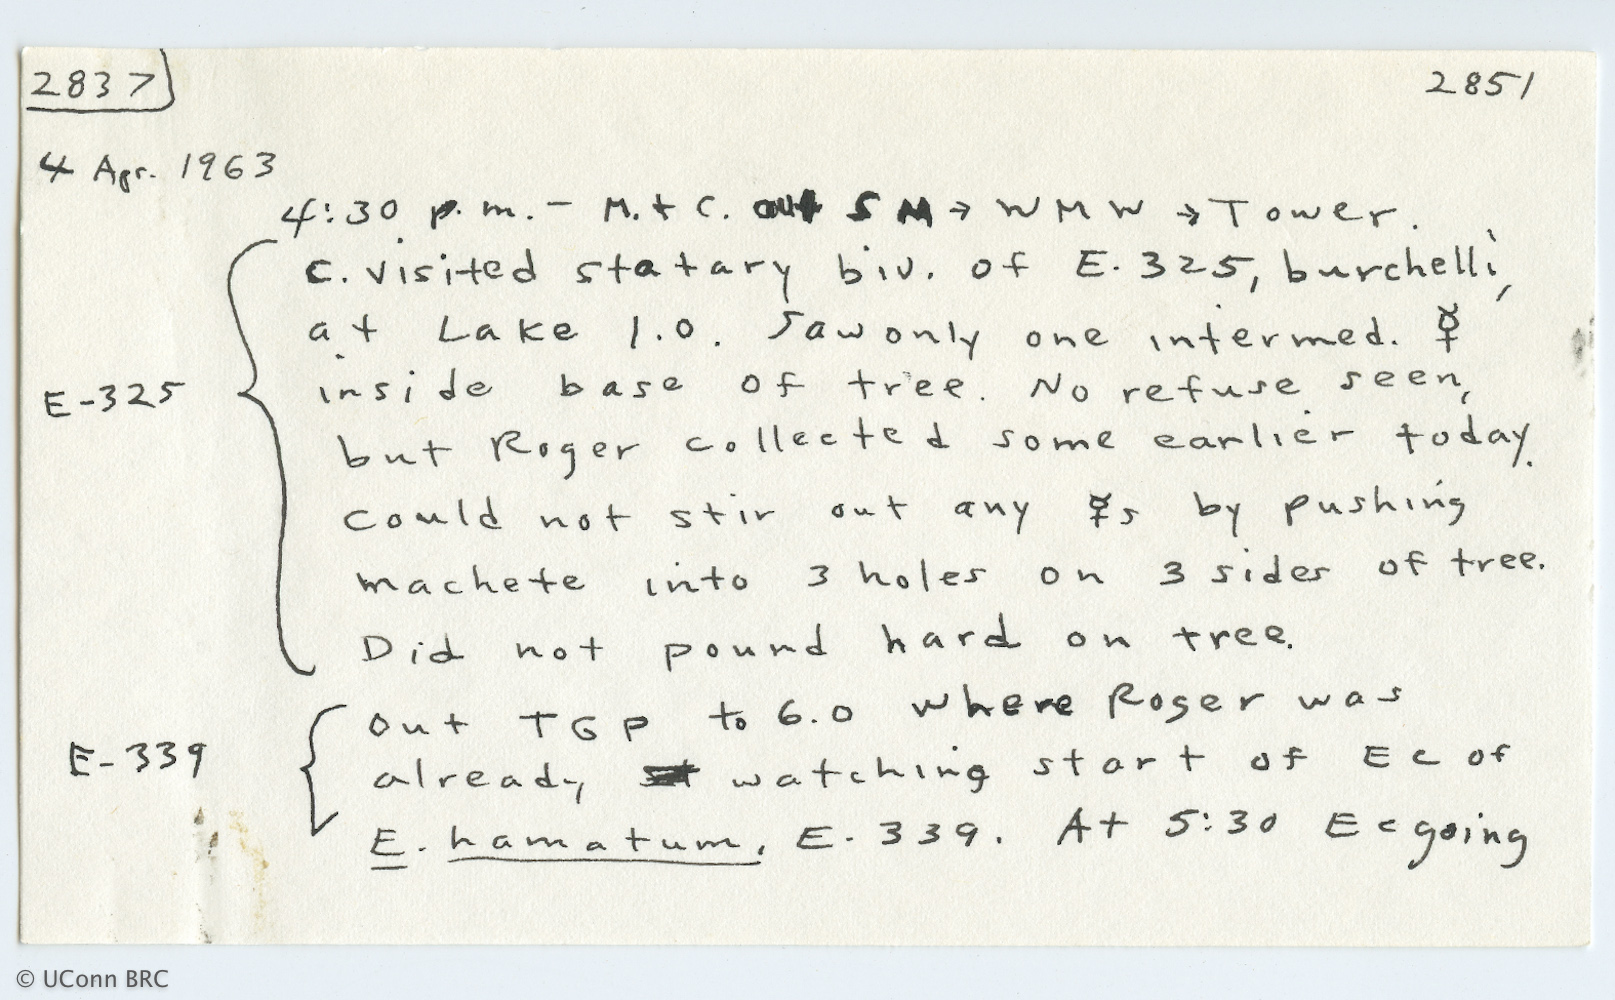 2837
2851
4 Apr. 1963
4:30 p.m. - M. + C. out SM → WMW → Tower.
C. visited statary biv. of E-325, burchelli,
at Lake 1.0. Saw only one intermed. ☿
E-325
inside base of tree. No refuse seen,
but Roger collected some earlier today.
Could not stir out any ☿s by pushing
machete into 3 holes on 3 sides of tree.
Did not pound hard on tree.
Out TGP to 6.0 where Roger was
E-339
already watching start of Ec of
E. hamatum, E-339. At 5:30 Ec going
© UConn BRC